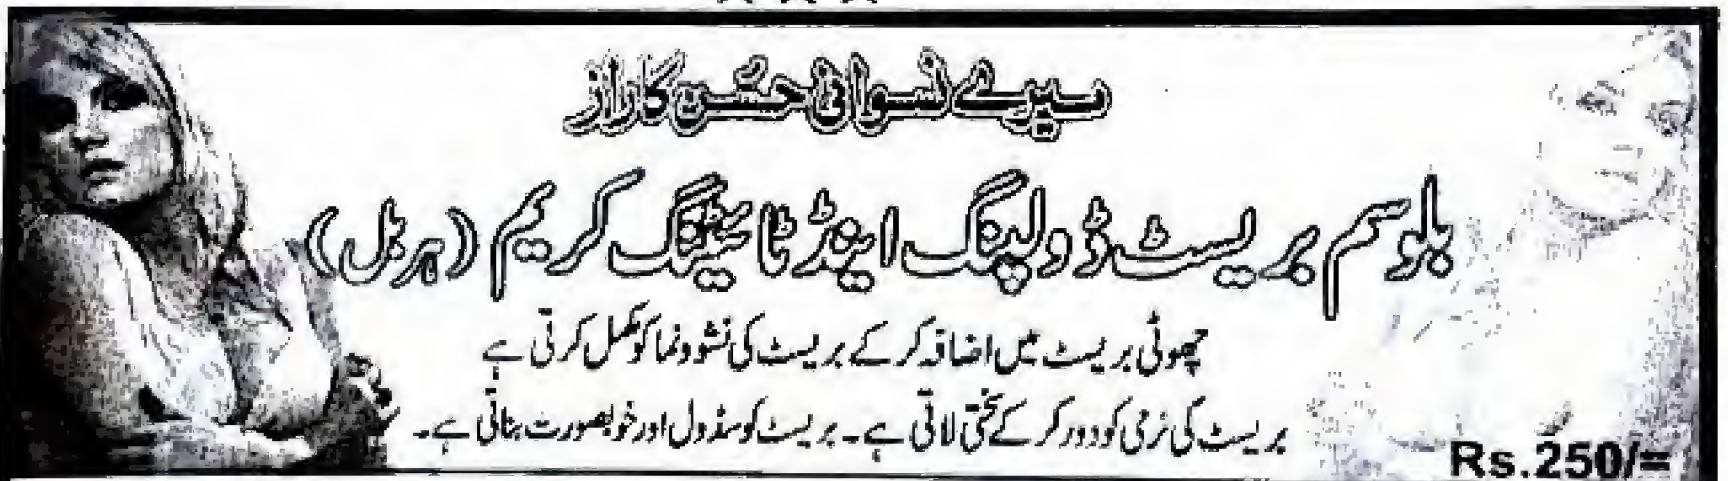 میرے نسوانی حسُن کا راز
بلوسم بریسٹ ڈولپنگ اینڈ ٹائیٹنگ کریم (ہربل)
چھوٹی بریسٹ میں اضافہ کر کے بریسٹ کی نشوونما کو مکمل کرتی ہے
بریسٹ کی نرمی کو دور کر کے سختی لاتی ہے۔ بریسٹ کو سڈول اور خوبصورت بناتی ہے۔
Rs.250/=